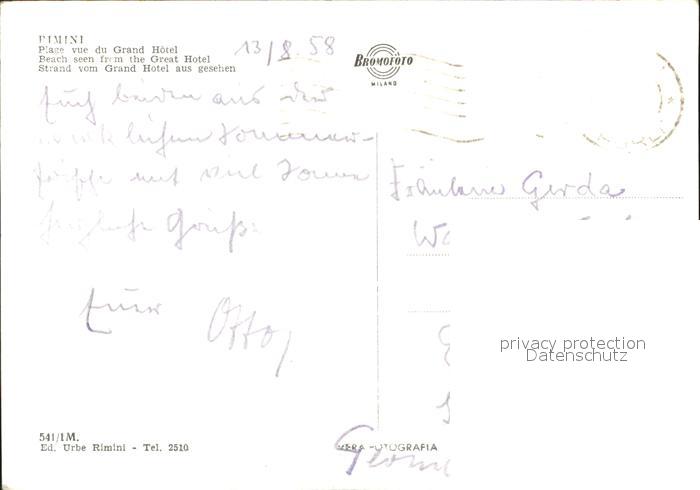 RIMINI
Plage vue du Grand Hôtel
Beach seen from the Great Hotel
Strand vom Grand Hotel aus gesehen
13/8.58
BROMOFOTO
MILANO
Euch beiden aus der
Sommer-
frische mit viel Sonne
herzliche Grüße
Euer
Otto
Fräulein Gerda
privacy protection
Datenschutz
541/1M.
Ed. Urbe Rimini - Tel. 2510
VERA FOTOGRAFIA